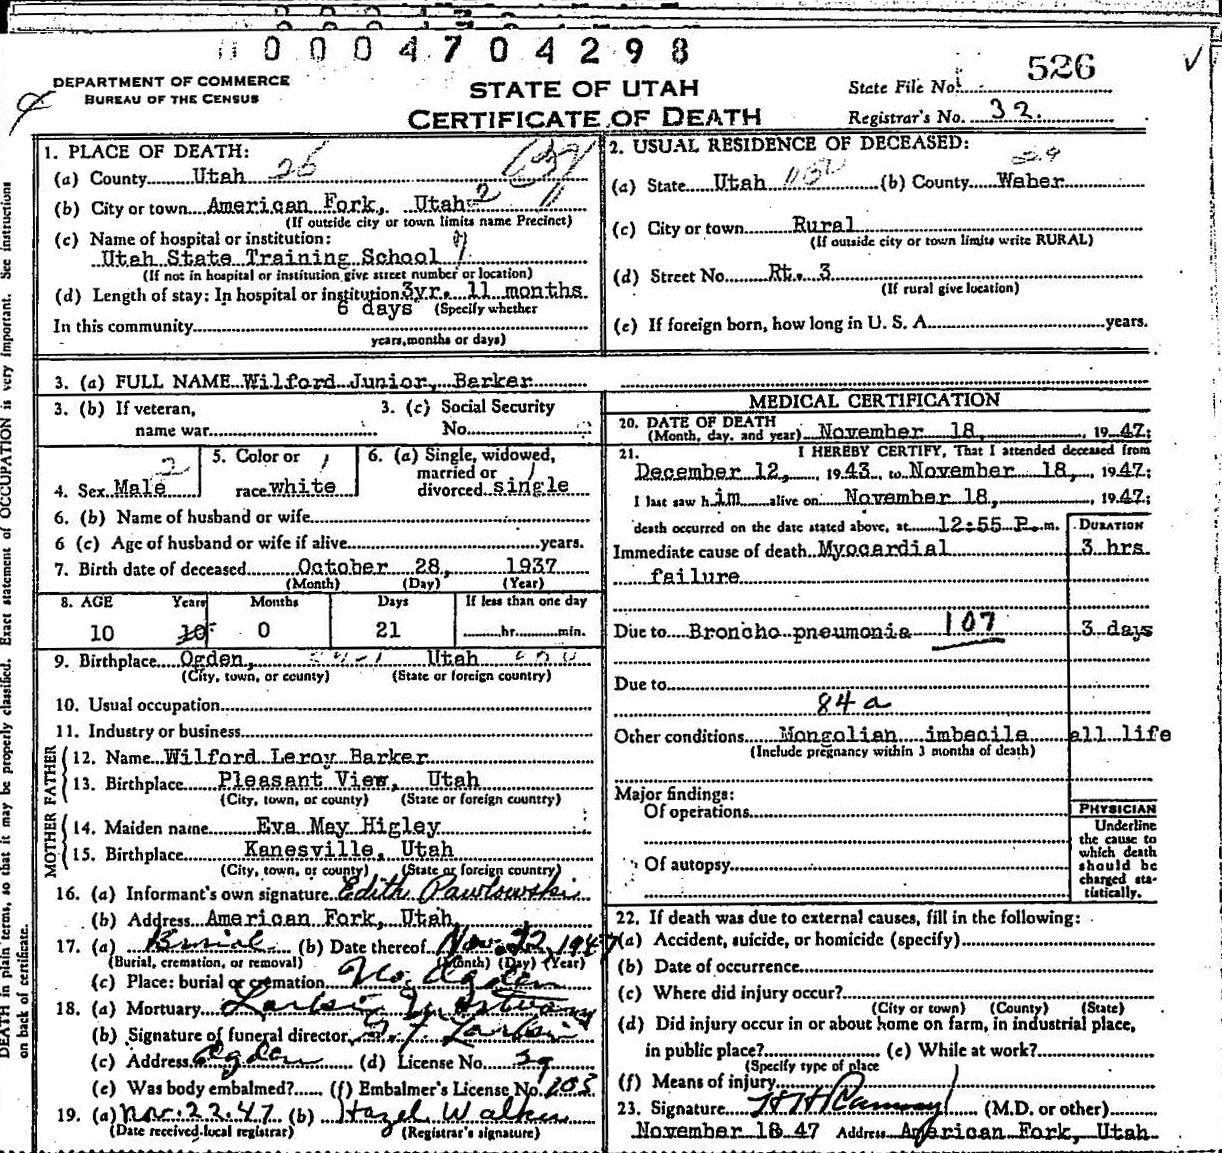 0004704298
DEPARTMENT OF COMMERCE
BUREAU OF THE CENSUS
STATE OF UTAH
CERTIFICATE OF DEATH
State File No. 526
Registrar's No. 32.
1. PLACE OF DEATH:
(a) County Utah 25
(b) City or town American Fork, Utah
(If outside city or town limits name Precinct)
(c) Name of hospital or institution:
Utah State Training School
(If not in hospital or institution give street number or location)
(d) Length of stay: In hospital or institution 3yr. 11 months
6 days (Specify whether
In this community
years, months or days)
2. USUAL RESIDENCE OF DECEASED:
29
(a) State Utah (b) County Weber
(c) City or town Rural
(If outside city or town limits write RURAL)
(d) Street No. Rt. 3
(If rural give location)
(e) If foreign born, how long in U. S. A. years.
3. (a) FULL NAME Wilford Junior, Barker
3. (b) If veteran,
name war
3. (c) Social Security
No.
4. Sex Male 2
5. Color or
race white 1
6. (a) Single, widowed,
married or
divorced single 1
6. (b) Name of husband or wife
6 (c) Age of husband or wife if alive years.
7. Birth date of deceased October 28, 1937
(Month) (Day) (Year)
8. AGE Years Months Days If less than one day
10 10 0 21 hr. min.
9. Birthplace Ogden, Utah
(City, town, or county) (State or foreign country)
10. Usual occupation
11. Industry or business
FATHER
12. Name Wilford Leroy Barker
13. Birthplace Pleasant View, Utah
(City, town, or county) (State or foreign country)
MOTHER
14. Maiden name Eva May Higley
15. Birthplace Kanesville, Utah
(City, town, or county) (State or foreign country)
16. (a) Informant's own signature Edith Pawlowski
(b) Address American Fork, Utah
17. (a) Burial (b) Date thereof Nov. 22 1947
(Burial, cremation, or removal) (Month) (Day) (Year)
(c) Place: burial or cremation No. Ogden
18. (a) Mortuary Larkin Mortuary
(b) Signature of funeral director Larkin
(c) Address Ogden (d) License No. 39
(e) Was body embalmed? (f) Embalmer's License No. 103
19. (a) Nov. 22. 47 (b) Hazel Walker
(Date received local registrar) (Registrar's signature)
MEDICAL CERTIFICATION
20. DATE OF DEATH
(Month, day, and year) November 18, 1947;
21. I HEREBY CERTIFY, That I attended deceased from
December 12, 1943, to November 18, 1947;
I last saw him alive on November 18, 1947;
death occurred on the date stated above, at 12:55 P. m.
DURATION
Immediate cause of death Myocardial 3 hrs
failure
Due to Broncho pneumonia 107 3 days
Due to
84a
Other conditions Mongolian imbecile all life
(Include pregnancy within 3 months of death)
Major findings:
Of operations
Of autopsy
PHYSICIAN
Underline
the cause to
which death
should be
charged sta-
tistically.
22. If death was due to external causes, fill in the following:
(a) Accident, suicide, or homicide (specify)
(b) Date of occurrence
(c) Where did injury occur?
(City or town) (County) (State)
(d) Did injury occur in or about home on farm, in industrial place,
in public place? (e) While at work?
(Specify type of place
(f) Means of injury
23. Signature (M.D. or other)
November 18 47 Address American Fork, Utah
DEATH in plain terms, so that it may be properly classified. Exact statement of OCCUPATION is very important. See instructions
on back of certificate.